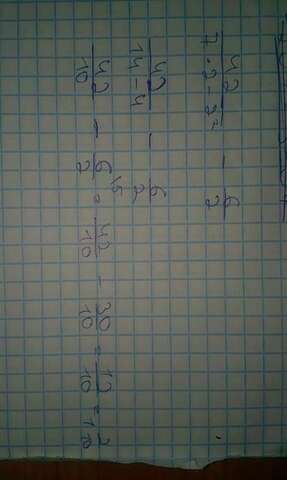 42/(7·2-2²) - 6/2
42/(14-4) - 6/2
42/10 - 6\5/2 = 42/10 - 30/10 = 12/10 = 1 2/10